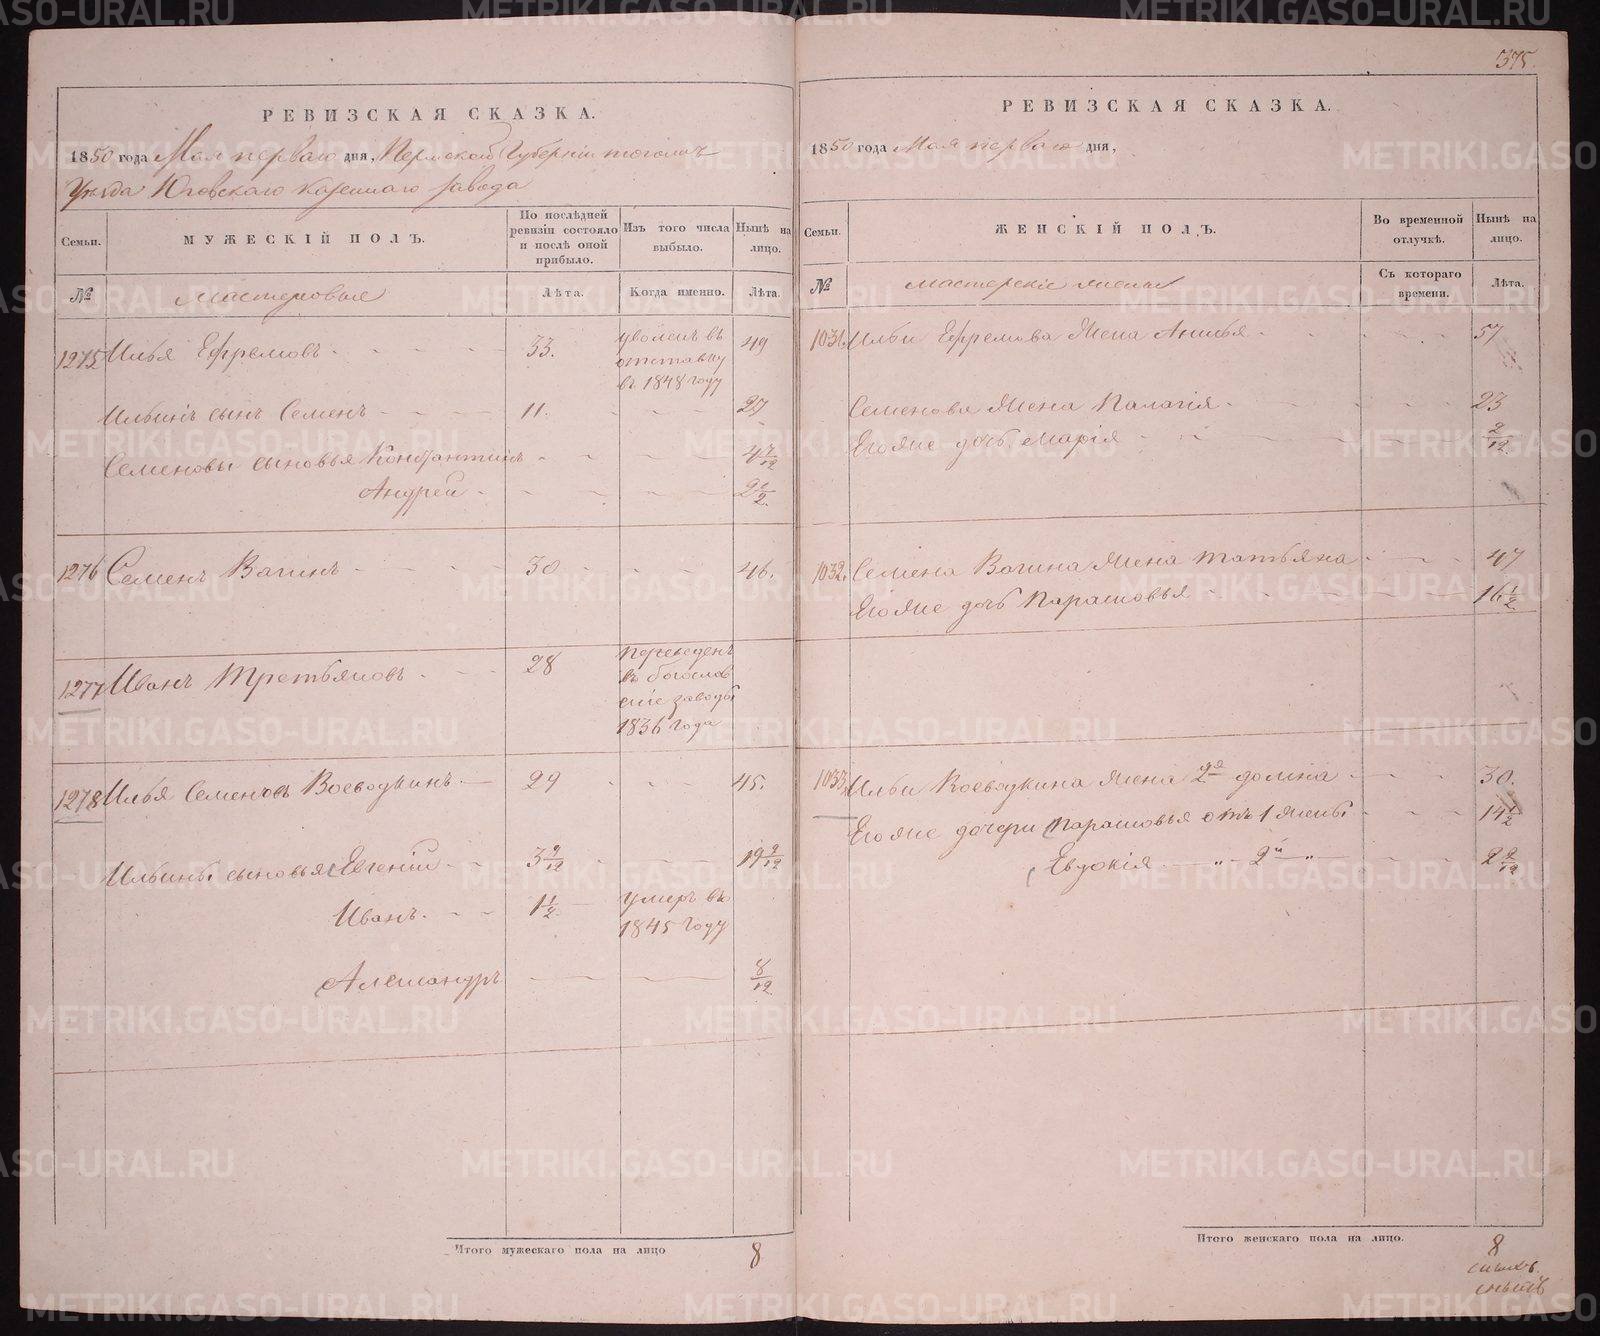 375.
РЕВИЗСКАЯ СКАЗКА.
1850 года Мая перваго дня, Пермской Губернии тогожъ
Уѣзда Юговскаго казеннаго завода
Семьи.
МУЖЕСКІЙ ПОЛЪ.
По послѣдней ревизіи состояло и послѣ оной прибыло.
Изъ того числа выбыло.
Нынѣ на лицо.
№
мастеровые
Лѣта.
Когда именно.
Лѣта.
1275 Илья Ефремовъ 33. уволенъ въ отставку въ 1848 году 49
Ильинъ сынъ Семенъ 11. 27
Семеновы сыновья Константинъ 4 7/12
Андрей
1276 Семенъ Вагинъ 30 46.
1277 Иванъ Третьяковъ 28 переведенъ въ богословскіе заводы 1836 года
1278 Илья Семеновъ Воеводкинъ 29 45.
Ильины сыновья Евгеній 3 9/12 19 9/12
Иванъ. 1 1/2 умеръ въ 1845 году
Александръ 8/12
Итого мужескаго пола на лицо 8
РЕВИЗСКАЯ СКАЗКА.
1850 года Мая перваго дня,
Семьи.
ЖЕНСКІЙ ПОЛЪ.
Во временной отлучкѣ.
Нынѣ на лицо.
№
мастерскіе жены
Съ котораго времени.
Лѣта.
1031. Ильи Ефремова жена Анисья 57
Семенова жена Палагія 23
Его же дочь Марія 2/12
1032. Семена Вагина жена Татьяна 47
Его же дочь Парасковья 16 1/2
1033. Ильи Воеводкина жена 2я Домна 30.
Его же дочери Парасковья отъ 1 жены 14 1/2
Евдокія — „ — 2й — „ 2 9/12
Итого женскаго пола на лицо. 8